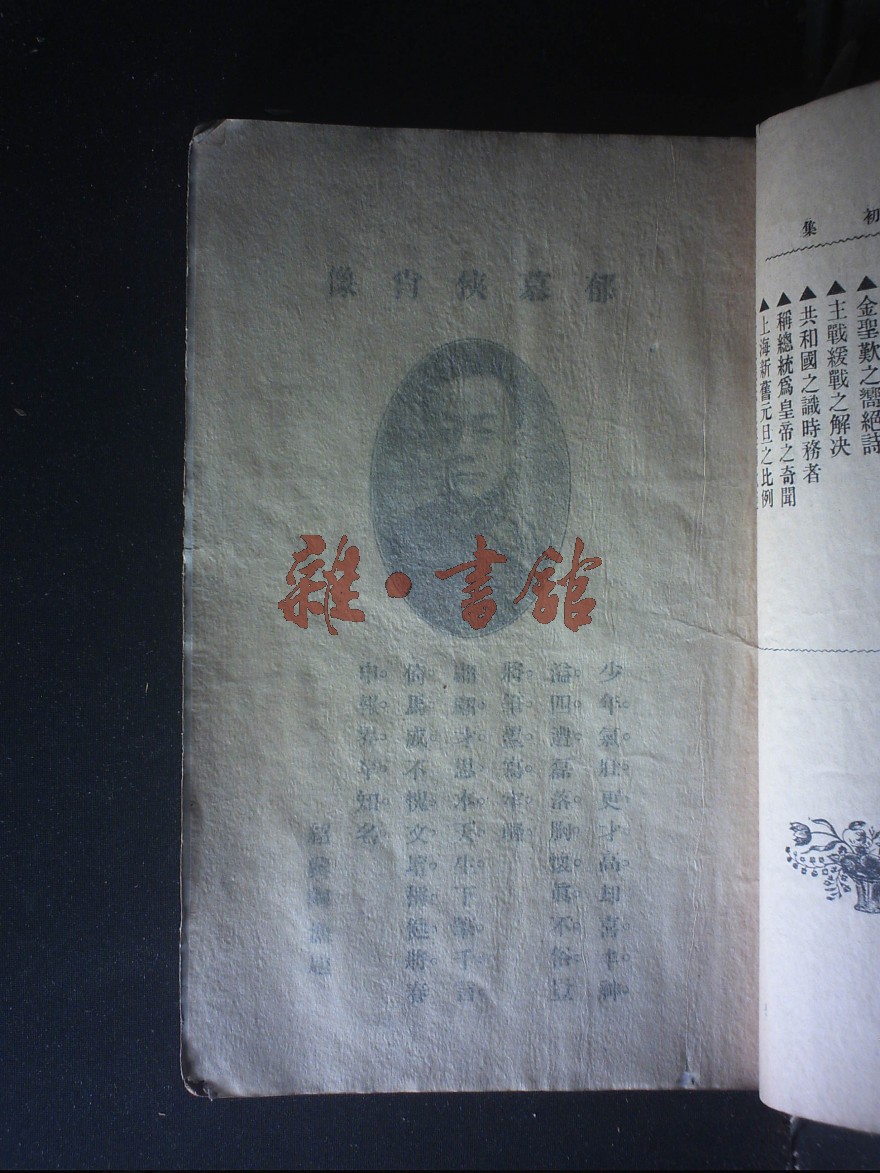 郁慕俠肖像
雜·書館
少年氣壯更才高却喜丰神
溢四遭磊落胸懷真不俗
將筆墨寫牢騷
翩翩才思本天生下筆千言
倚馬成不愧文壇稱健將春
申報界早知名
初集
▲金聖歎之嚮絕詩
▲主戰緩戰之解決
▲共和國之識時務者
▲稱總統爲皇帝之奇聞
▲上海新舊元旦之比例